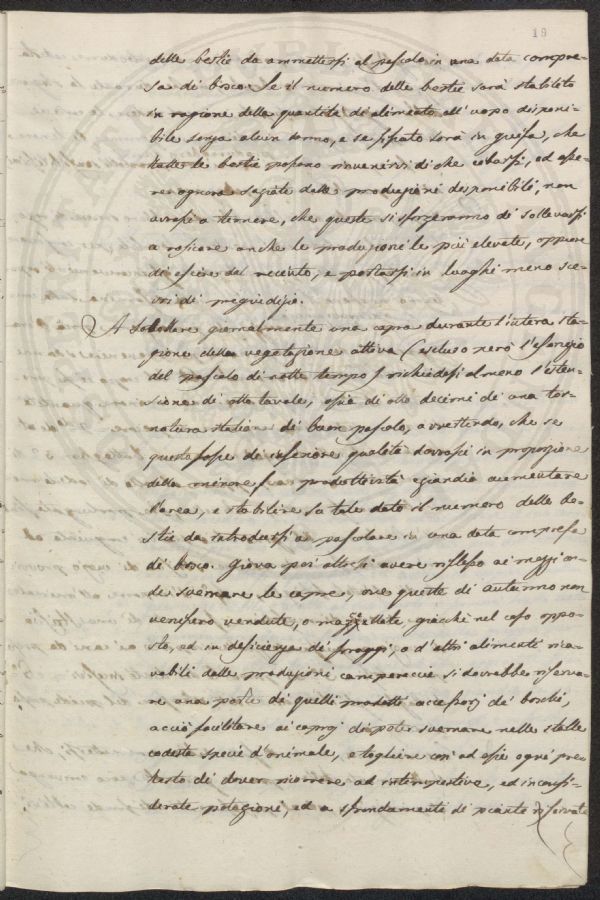 19
delle bestie da ammettersi al pascolo in una data compre-
sa di bosco. Se il numero delle bestie sarà stabilito
in ragione della quantità di alimento all'uopo disponi-
bile senza alcun danno, e se fissato sarà in guisa, che
tutte le bestie possano rinvenirvi di che cibarsi, ed esse-
re ognora saziate dalle produzioni disponibili, non
avrassi a temere, che queste si sforzeranno di sollevarsi
a rosicare anche le produzioni le più elevate, oppure
di escire dal recinto, e portarsi in luoghi meno sce-
vri di pregiudizio.
A satollare giornalmente una capra durante l'intera sta-
gione della vegetazione attiva (escluso però l'esercizio
del pascolo di notte tempo) richiedesi almeno l'esten-
sione di otto tavole, ossia di otto decimi di una tor-
natura italiana di buon pascolo, avvertendo, che se
questo fosse di inferiore qualità dovrassi in proporzione
della minore sua produttività eziandio aumentare
l'area, e stabilire su tale dato il numero delle be-
stie da introdursi a pascolare in una data compresa
di bosco. Giova poi altresì avere riflesso ai mezzi on-
de svernare le capre, ove queste di autunno non
venissero vendute, o mazzellate, giacchè nel caso oppo-
sto, ed in deficienza de' foraggi, o d'altri alimenti rica-
vabili dalle produzioni camparecie si dovrebbe riserva-
re una parte di quelli prodotti accessorj de' boschi,
acciò facilitare ai capraj di poter svernare nelle stalle
codesta specie d'animale, e togliere così ad essi ogni pre-
testo di dover ricorrere ad intempestive, ed inconsi-
derate potagioni, ed a sfrondamenti di piante riservate